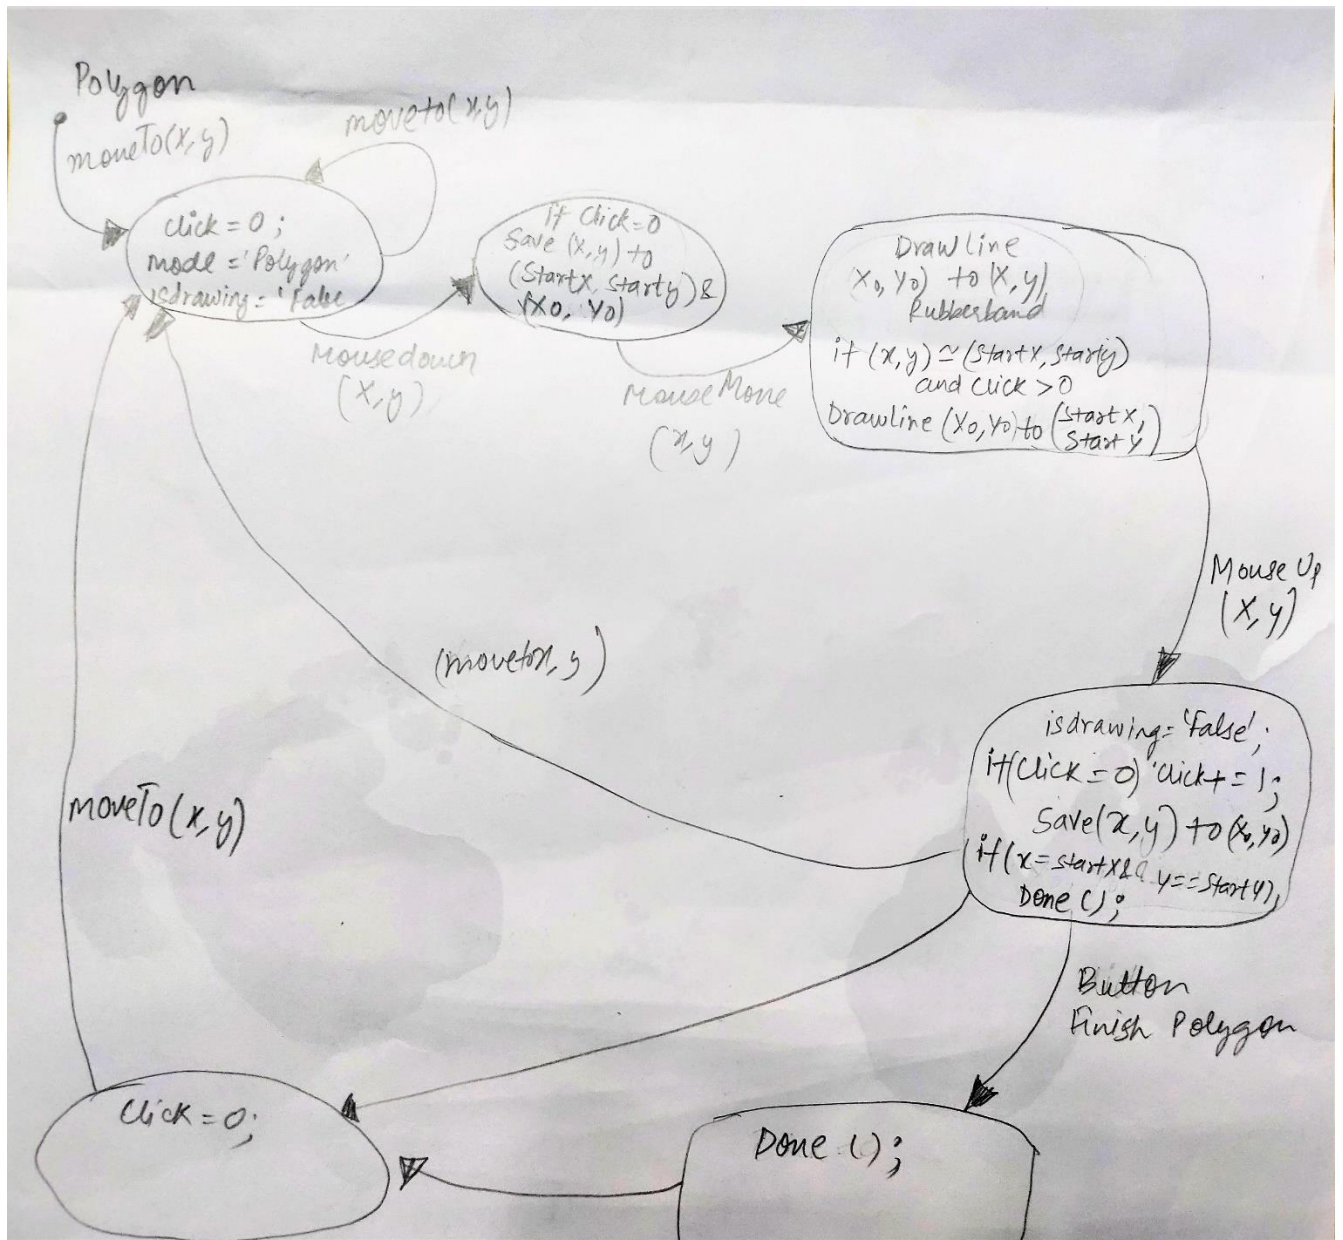 Polygon
moveTo(x,y)
moveto(x,y)
Click = 0;
mode = 'Polygon'
isdrawing = 'False
Mousedown
(x,y)
if Click=0
Save (x,y) to
(Startx, Starty) &
(X0, Y0)
Mouse Move
(x,y)
Drawline
(X0, Y0) to (x,y)
Rubberband
if (x,y) ≃ (Startx, Starty)
and click >0
Drawline (X0,Y0) to (Startx,
Start y)
Mouse Up
(x,y)
(movetox, y)
isdrawing= 'False';
if(Click = 0) Click+=1;
Save(x,y) to (x0,y0)
if(x=startx&& y==StartY),
Done ();
moveTo(x,y)
Button
Finish Polygon
Click = 0;
Done ();